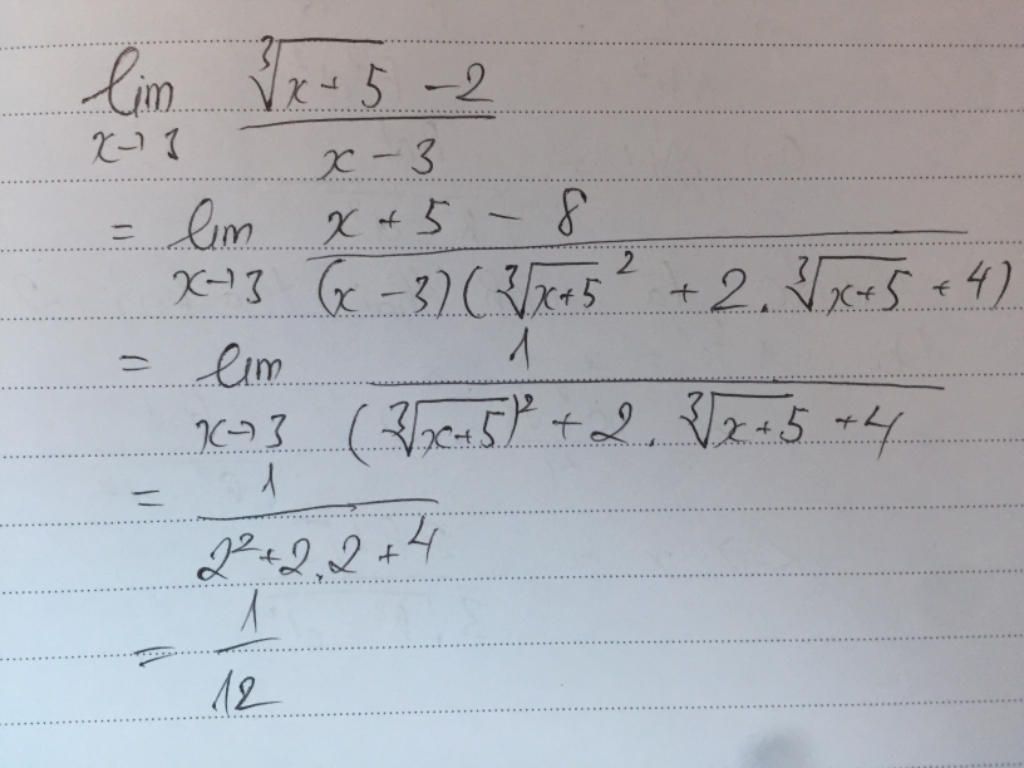 lim_{x→3} \frac{\sqrt[3]{x+5} - 2}{x - 3}
= lim_{x→3} \frac{x + 5 - 8}{(x - 3)(\sqrt[3]{x+5}^2 + 2 . \sqrt[3]{x+5} + 4)}
= lim_{x→3} \frac{1}{(\sqrt[3]{x+5})^2 + 2 . \sqrt[3]{x+5} + 4}
= \frac{1}{2^2 + 2.2 + 4}
= \frac{1}{12}